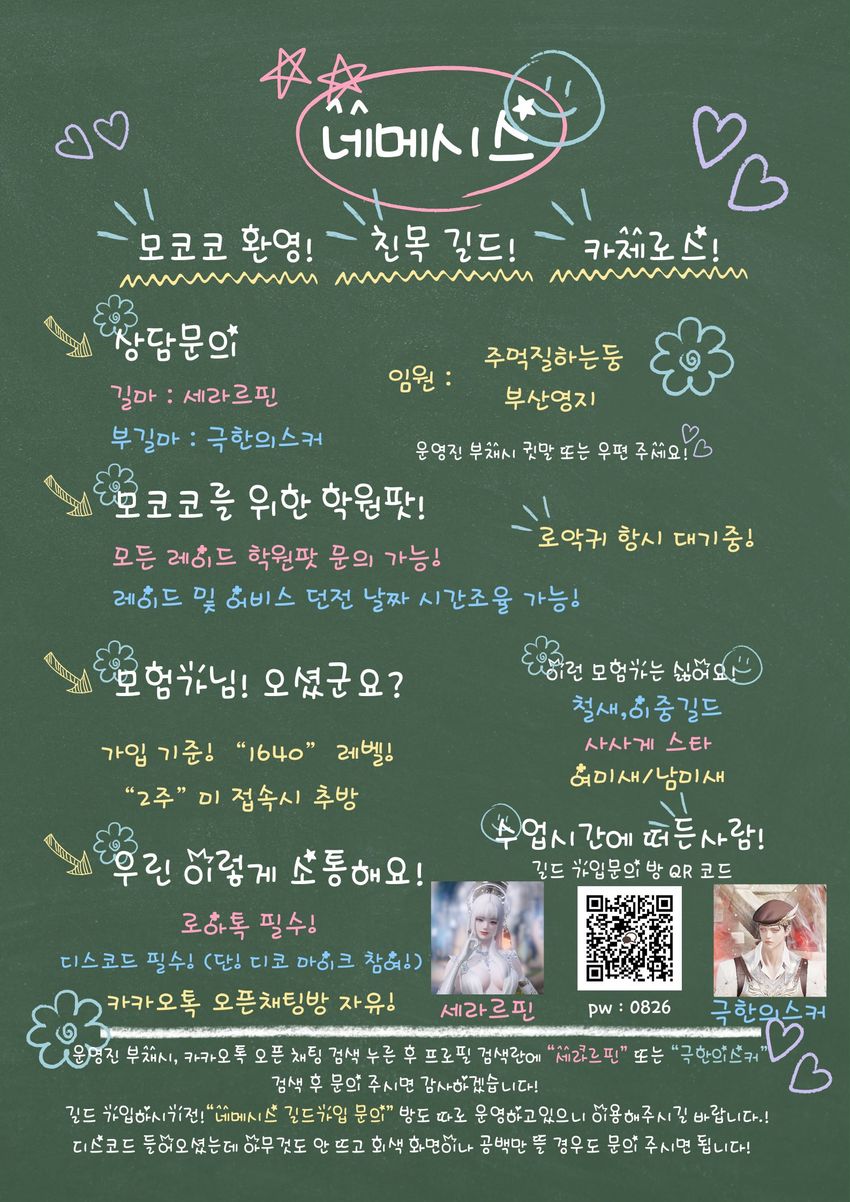 네메시스
모코코 환영! 친목 길드! 카제로스!
상담문의
길마 : 세라르핀
부길마 : 극한의스커
임원 : 주먹질하는둥
부산영지
운영진 부재시 귓말 또는 우편 주세요!
모코코를 위한 학원팟!
모든 레이드 학원팟 문의 가능!
레이드 및 어비스 던전 날짜 시간조율 가능!
로악귀 항시 대기중!
모험가님! 오셨군요?
가입 기준! “1640” 레벨!
“2주” 미 접속시 추방
이런 모험가는 싫어요!
철새,이중길드
사사게 스타
여미새/남미새
우린 이렇게 소통해요!
로아톡 필수!
디스코드 필수! (단! 디코 마이크 참여!)
카카오톡 오픈채팅방 자유!
수업시간에 떠든사람!
길드 가입문의 방 QR 코드
세라르핀
pw : 0826
극한의스커
운영진 부재시, 카카오톡 오픈 채팅 검색 누른 후 프로필 검색란에 “세라르핀” 또는 “극한의스커”
검색 후 문의 주시면 감사하겠습니다!
길드 가입하시기전! “네메시스 길드가입 문의” 방도 따로 운영하고있으니 이용해주시길 바랍니다.!
디스코드 들어오셨는데 아무것도 안 뜨고 회색 화면이나 공백만 뜰 경우도 문의 주시면 됩니다!